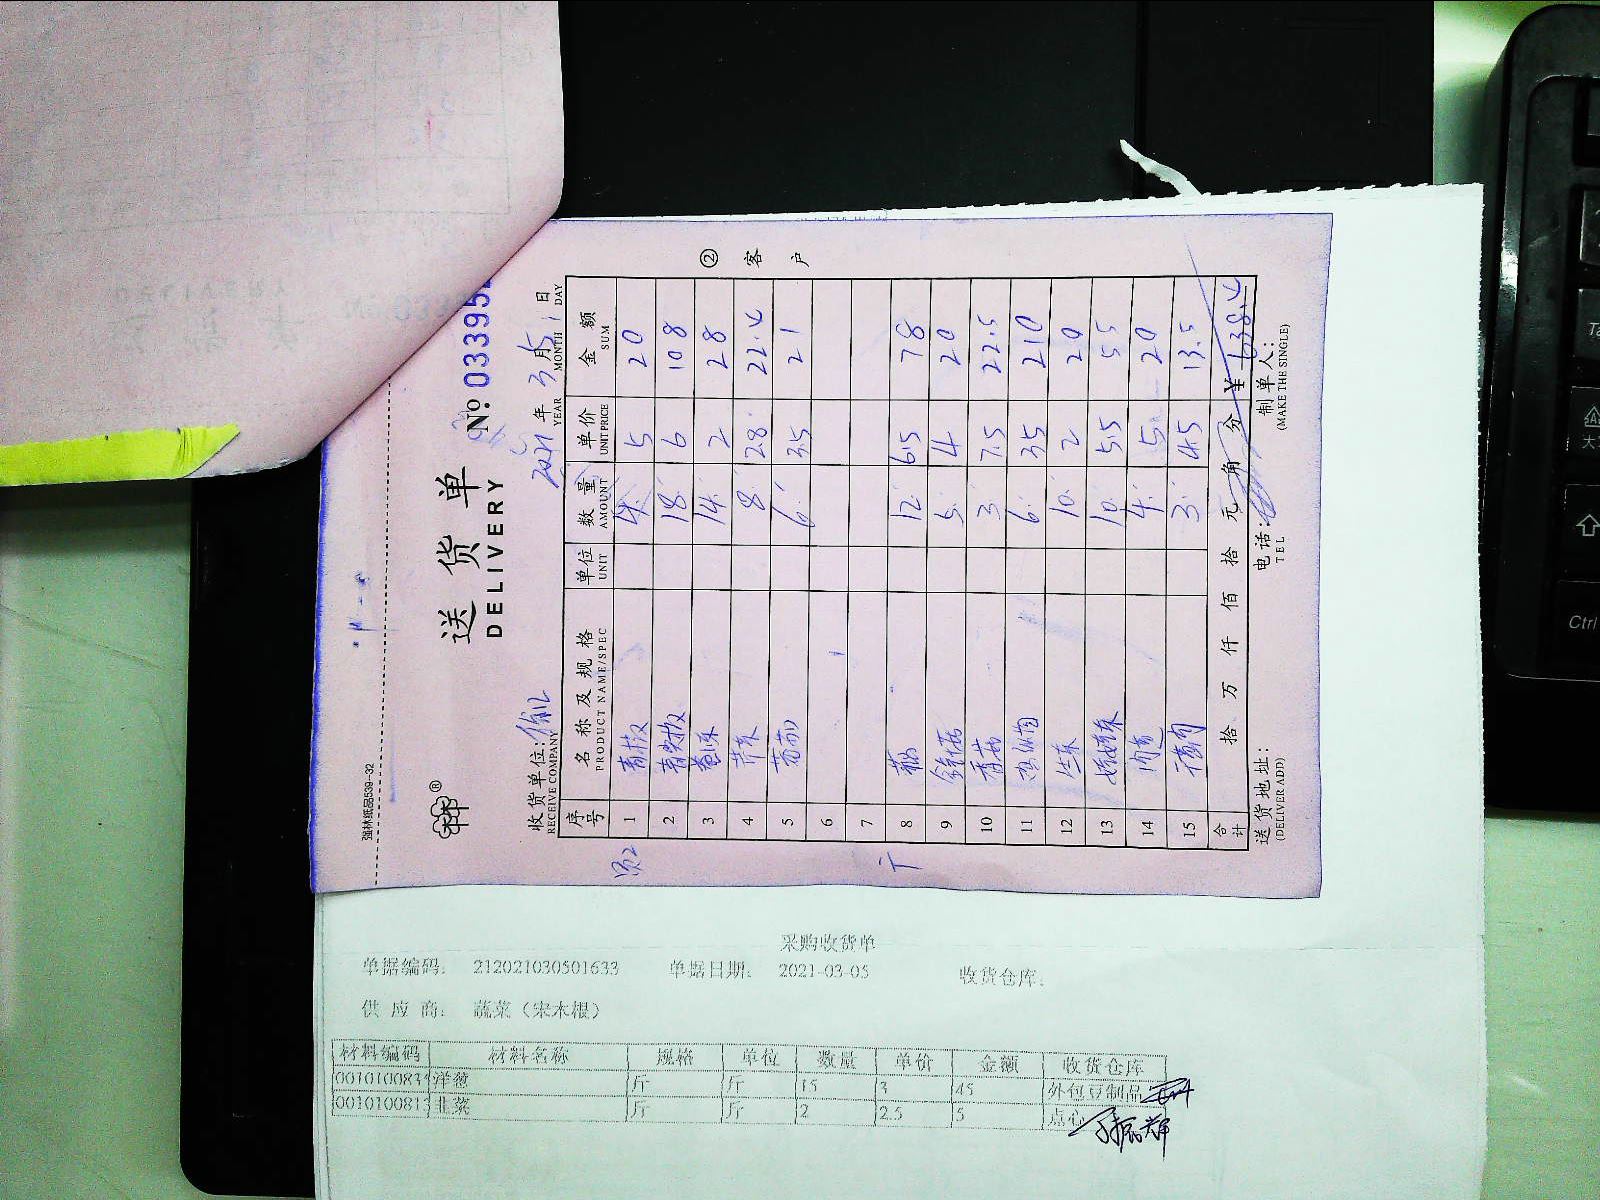 强林纸品539-32
送货单
DELIVERY
№: 03395
2021年 3月5日
YEAR MONTH DAY
收货单位:
RECEIVE COMPANY
② 客户
序号 名称及规格 单位 数量 单价 金额
PRODUCT NAME/SPEC UNIT AMOUNT UNIT PRICE SUM
1 4 5 20
2 18 6 108
3 14 2 28
4 芹菜 8 2.8 22.4
5 6 3.5 21
6
7
8 12 6.5 78
9 5 4 20
10 香菇 3 7.5 22.5
11 6 35 210
12 生菜 10 2 20
13 娃娃菜 10 5.5 55
14 4 5 20
15 3 4.5 13.5
合计 拾 万 仟 佰 拾 元 角 分 ¥ 638.4
送货地址: 电话: 制单人:
(DELIVER ADD) TEL (MAKE THE SINGLE)
采购收货单
单据编码: 212021030501633 单据日期: 2021-03-05 收货仓库:
供应商: 蔬菜(宋木根)
材料编码 材料名称 规格 单位 数量 单价 金额 收货仓库
001010083 洋葱 斤 斤 15 3 45 外包豆制品
001010081 韭菜 斤 斤 2 2.5 5 点心
Ctrl